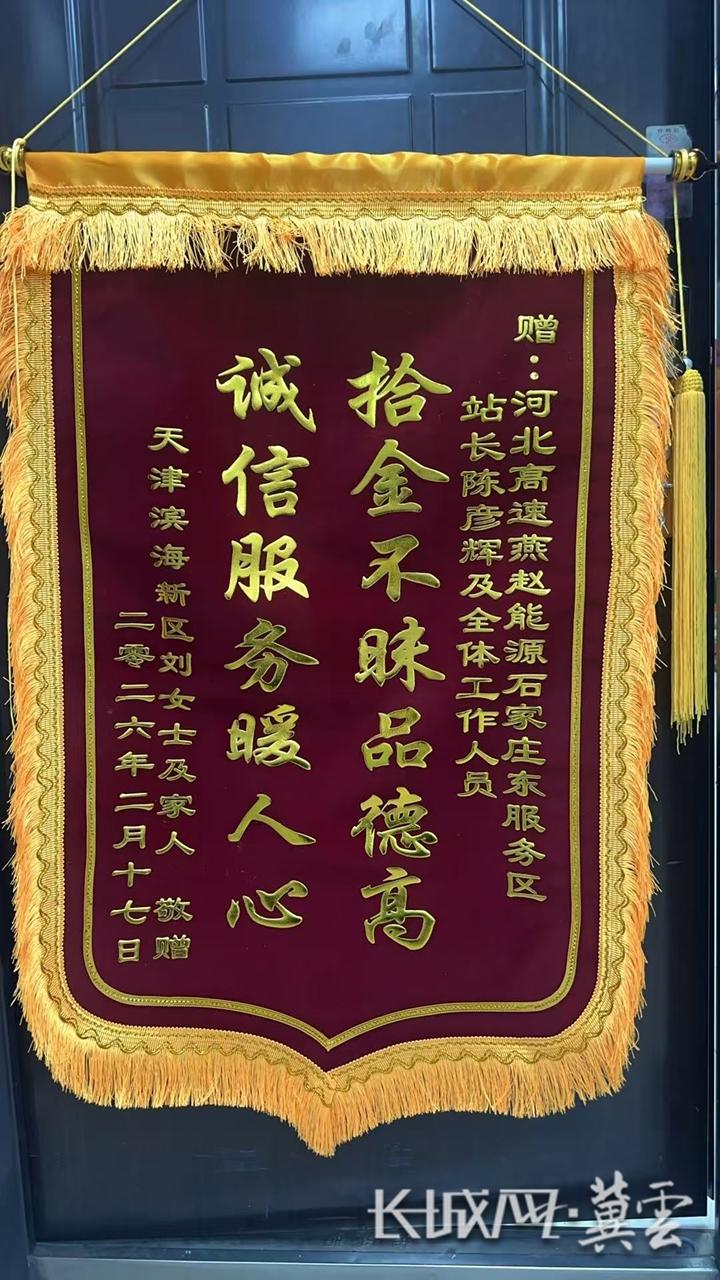 赠：河北高速燕赵能源石家庄东服务区
站长陈彦辉及全体工作人员
拾金不昧品德高
诚信服务暖人心
天津滨海新区刘女士及家人 敬赠
二零二六年二月十七日
长城网·冀雲